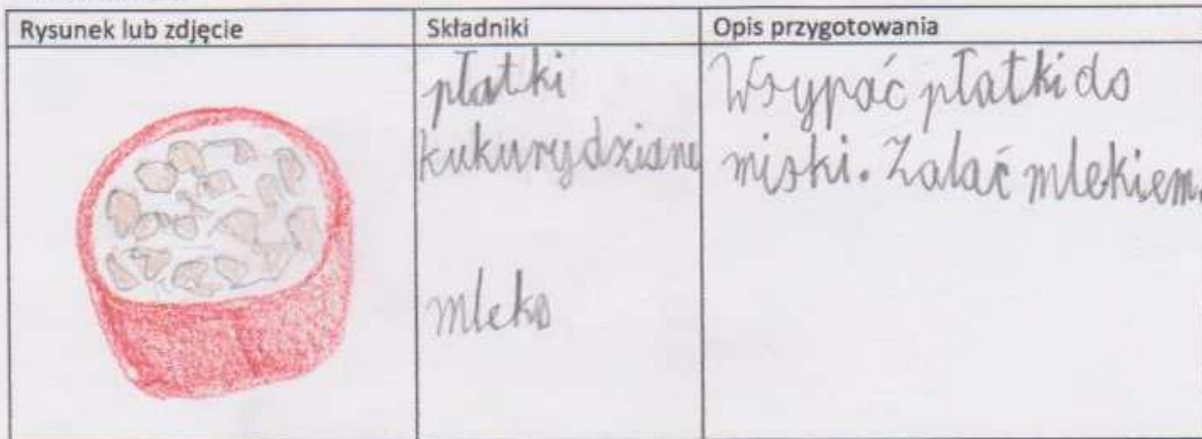 Rysunek lub zdjęcie
Składniki
Opis przygotowania
płatki
kukurydziane
mleko
Wsypać płatki do
miski. Zalać mlekiem.